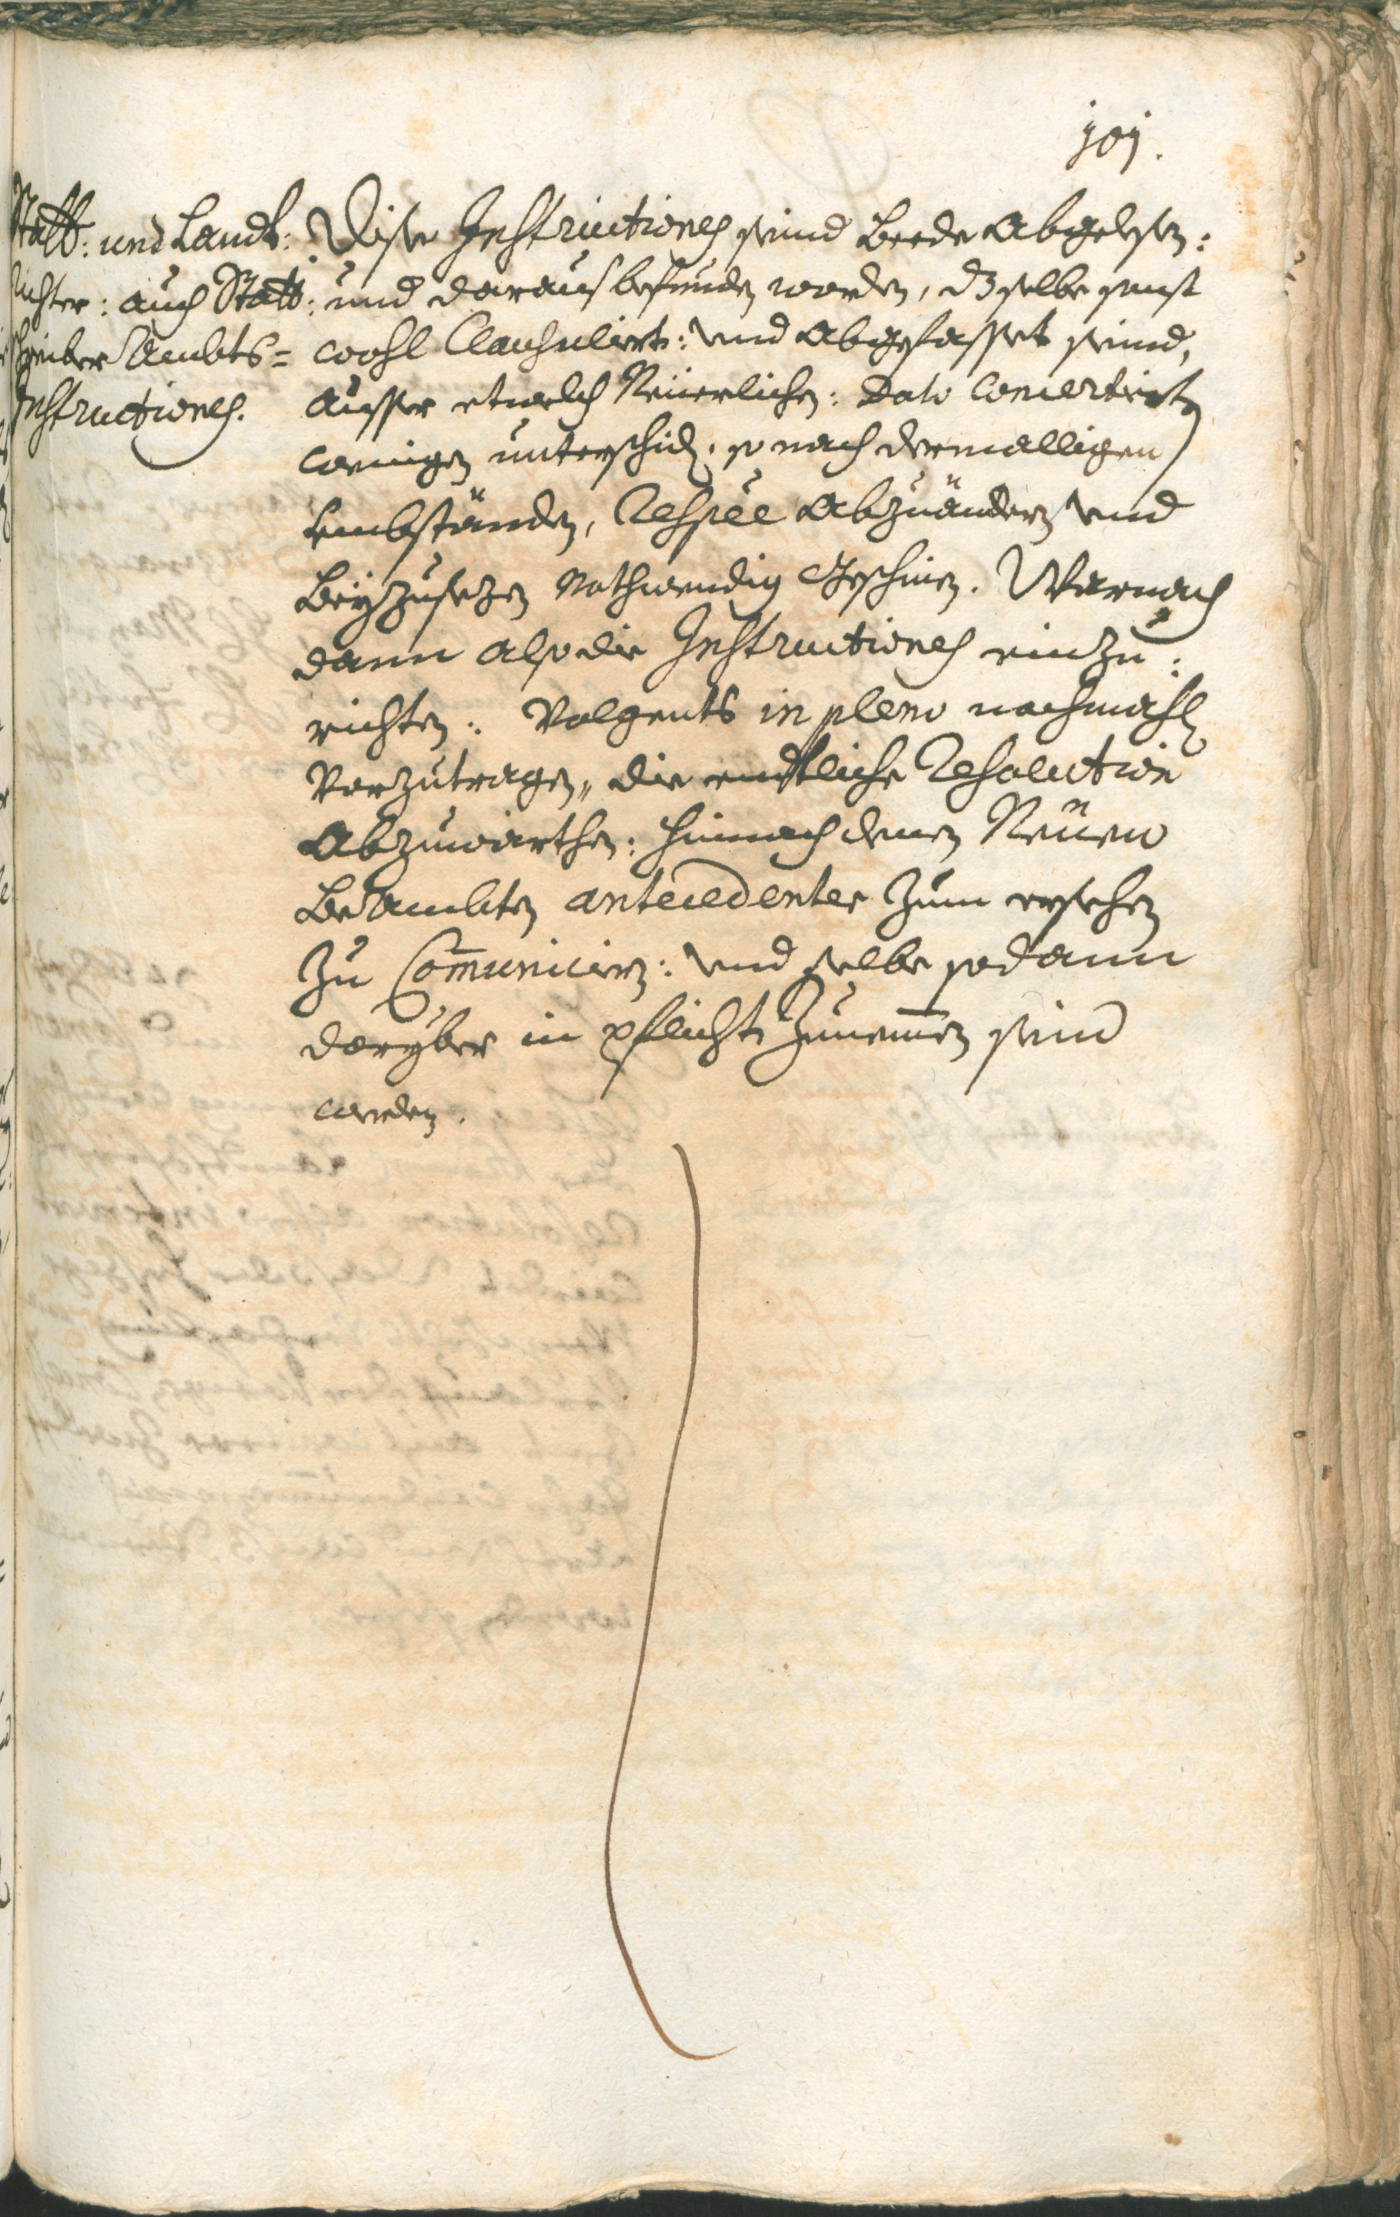 101.
Statt: und Landt:
Richter: auch Statt:
schreiber Ambts=
Instructiones.
Dise Instructiones seind beede abgelesen:
und daraus befunden worden, dz selbe sonst
wohl Clausuliert: und abgefasset seind,
ausser etwelch Neüerlichen: Dato Concertirten
wenigen unterschid, so nach dermalligen
Umbständen, respée abzuändern und
beyzusezen nothwendig geschinen. Warnach
dann also die Instructiones einzu:
richten: Volgents in pleno nochmahlen
vorzutragen, die endtliche Resolution
abzuwarthen: hinnach denen Neüen
beambten antecedenter zum ersehen
zu Com̄unicieren: und selbe sodann
daryber in pflicht zunem̄en sein
werden.